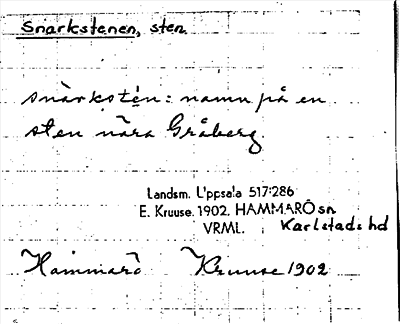 Snarkstenen, sten.
snàrkstén: namn på en
sten nära Gråberg.
Landsm. Uppsala 517:286
E. Kruuse. 1902. HAMMARÖ sn.
VRML. Karlstads hd
Hammarö Kruuse 1902